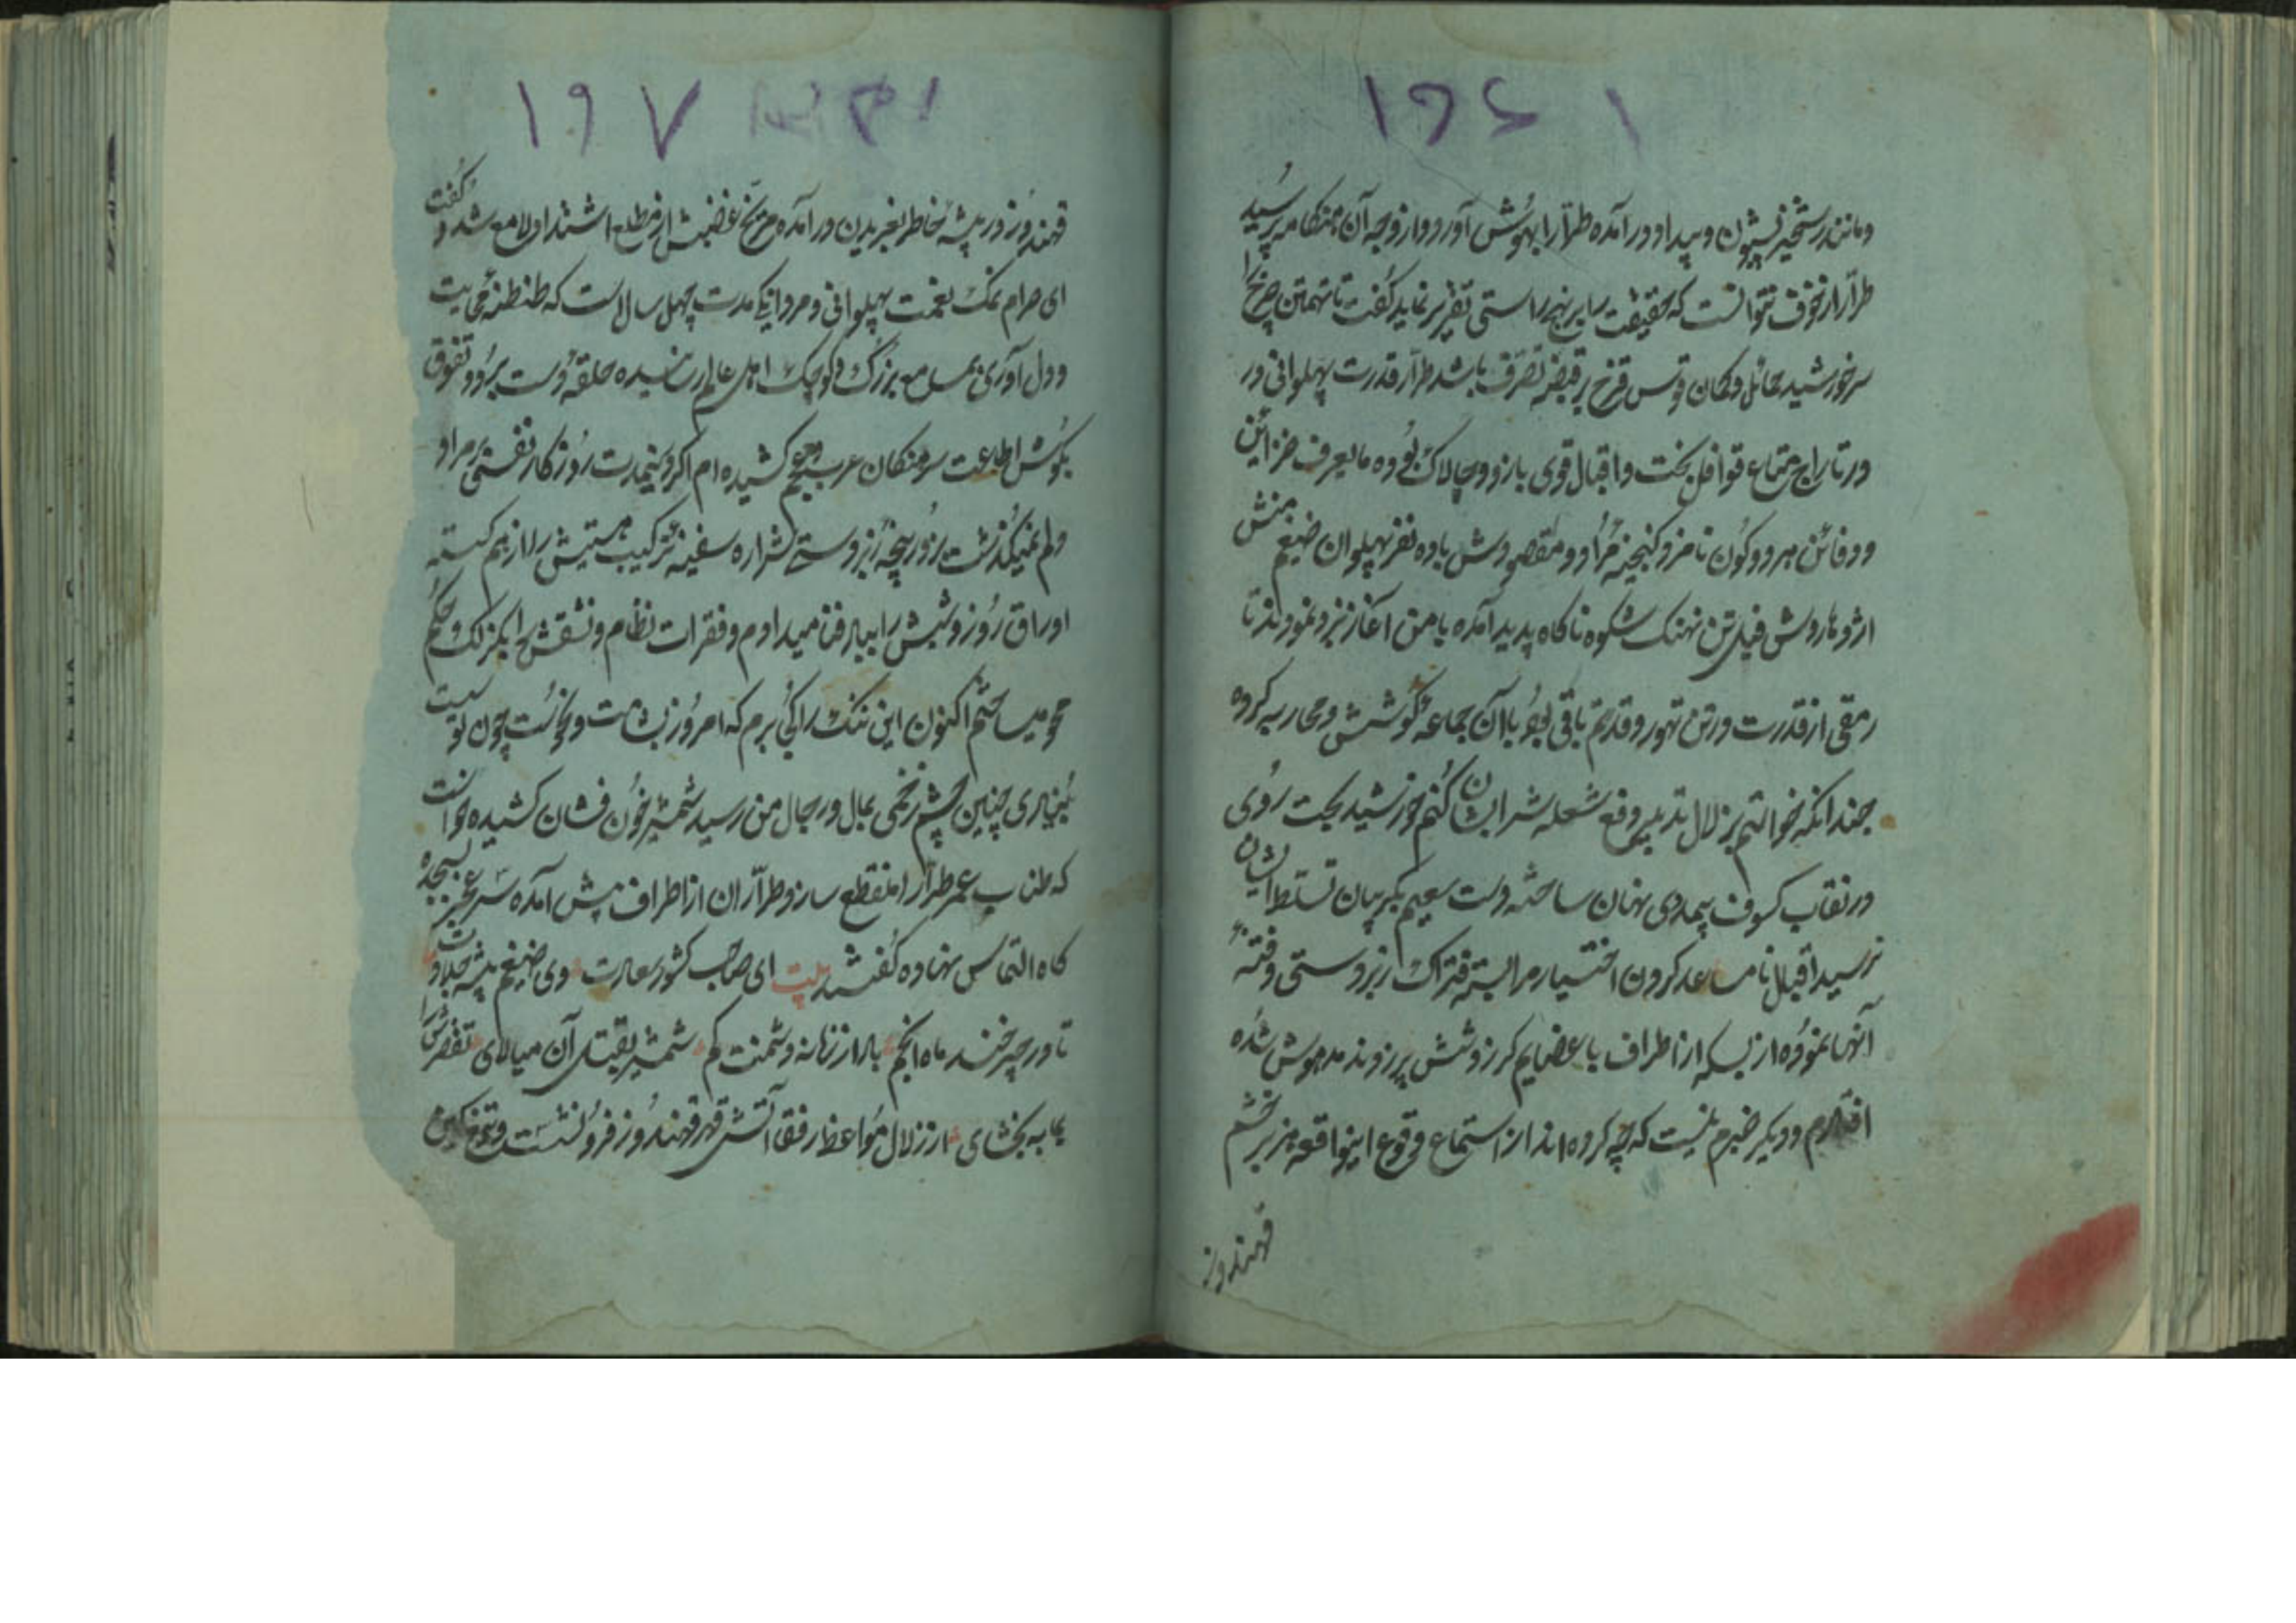 ۱۹۶ ۱
و مانند رستخیز بشیون و بیداد در آمده طرّار را بهوُش آورد و از وجه آن هنگامه پرسُید
طرّار از خوف نتوانست که حقیقت را بر نهج راستی تقریر نماید گفت تا تهمتن چرخ را
سر خورشید حمائل و کمان قوس قزح بر قبضه تصرّف باشد طرّار قدرت پهلوانی در
در تاراج متاع قوافل بخت و اقبال قوی بازو و چالاک بوُده مایعرف خزائن
و دفائن هر دو کوُن نامزد کنجینه مُراد و مقصودش با ده نفر پهلوان ضیغم منش
اژدهاروش فیل تن نهنک شکوه ناکاه پدید آمده با من آغاز نبرد نمودند تا
رمقی از قدرت در تن تهور و قدرتم باقی بوُد با آن جماعه کوُشش و محاربه کرده
چندانکه خواستم بزلال تدبیر دفع شعله شر ایشان کُنم خورشید بخت روُی
در نقاب کسوف بیمددی پنهان ساخته دست سعیم بگریبان تسلط ایشان
نرسید اقبال نامساعد کردون اختسیار مرا بسته فتراک زبردستی و فتنهٔ
آنها نموُده از بسکه از اطراف باعضایم کرز و شش پر زدند مدهوش شُده
افتادم و دیکر خبرم نیست که چه کرده اند از استماع وقوع اینواقعه هزبر خشم
قهندوز
۱۹۷
قهندوُز در بیشه خاطر بغریدن در آمده مرّیخ غضبش از مطلع اشتداد لامع شد و گفت
ای حرام نمک بغمت پهلوانی و مردانکی مدت چهل سال است که طنطنهٔ حمایت
و دل آوری بمسامع بزرگ و کوچک اهل عالم رسانیده حلقه دست برُد و تفوق
بکوُش اطاعت سرهنکان عرب و عجم کشیده ام اکر در نیمدت روُزکار نفسی بر مراد
دلم نمیکُذشت بزور پنجهٔ زبردستی شراره سفینهٔ ترکیب هستیش را از هم کسسته
اوراق روُز و شبش را بباد فنا میدادم و فقرات نظام و نسقش را بکزلک و حکم
محو میساختم اکنون این ننک را کجا برم که امروُز بشامت و نحوُست چون تو نیست
بُنیادی چنین چشم زخمی بمال و رجال من رسید شمشیر خوُن فشان کشیده خواست
که طناب عمر طرّار را منقطع سازد طرّاران از اطراف پیش آمده سر عجز بسجده
کاه التماس نهاده کُفتند بیت ای صاحب کشور عمارت وی ضیغم بیشه جلادت
تا در چرخند ماه انجم باد از زمانه دشمنت کم شمشیر بقتل آن میالای تقصیرش را
بما به بخشای از زلال مُواعظ رفقا آتش قهر قهندُوز فروُ نشست و تیغ کین